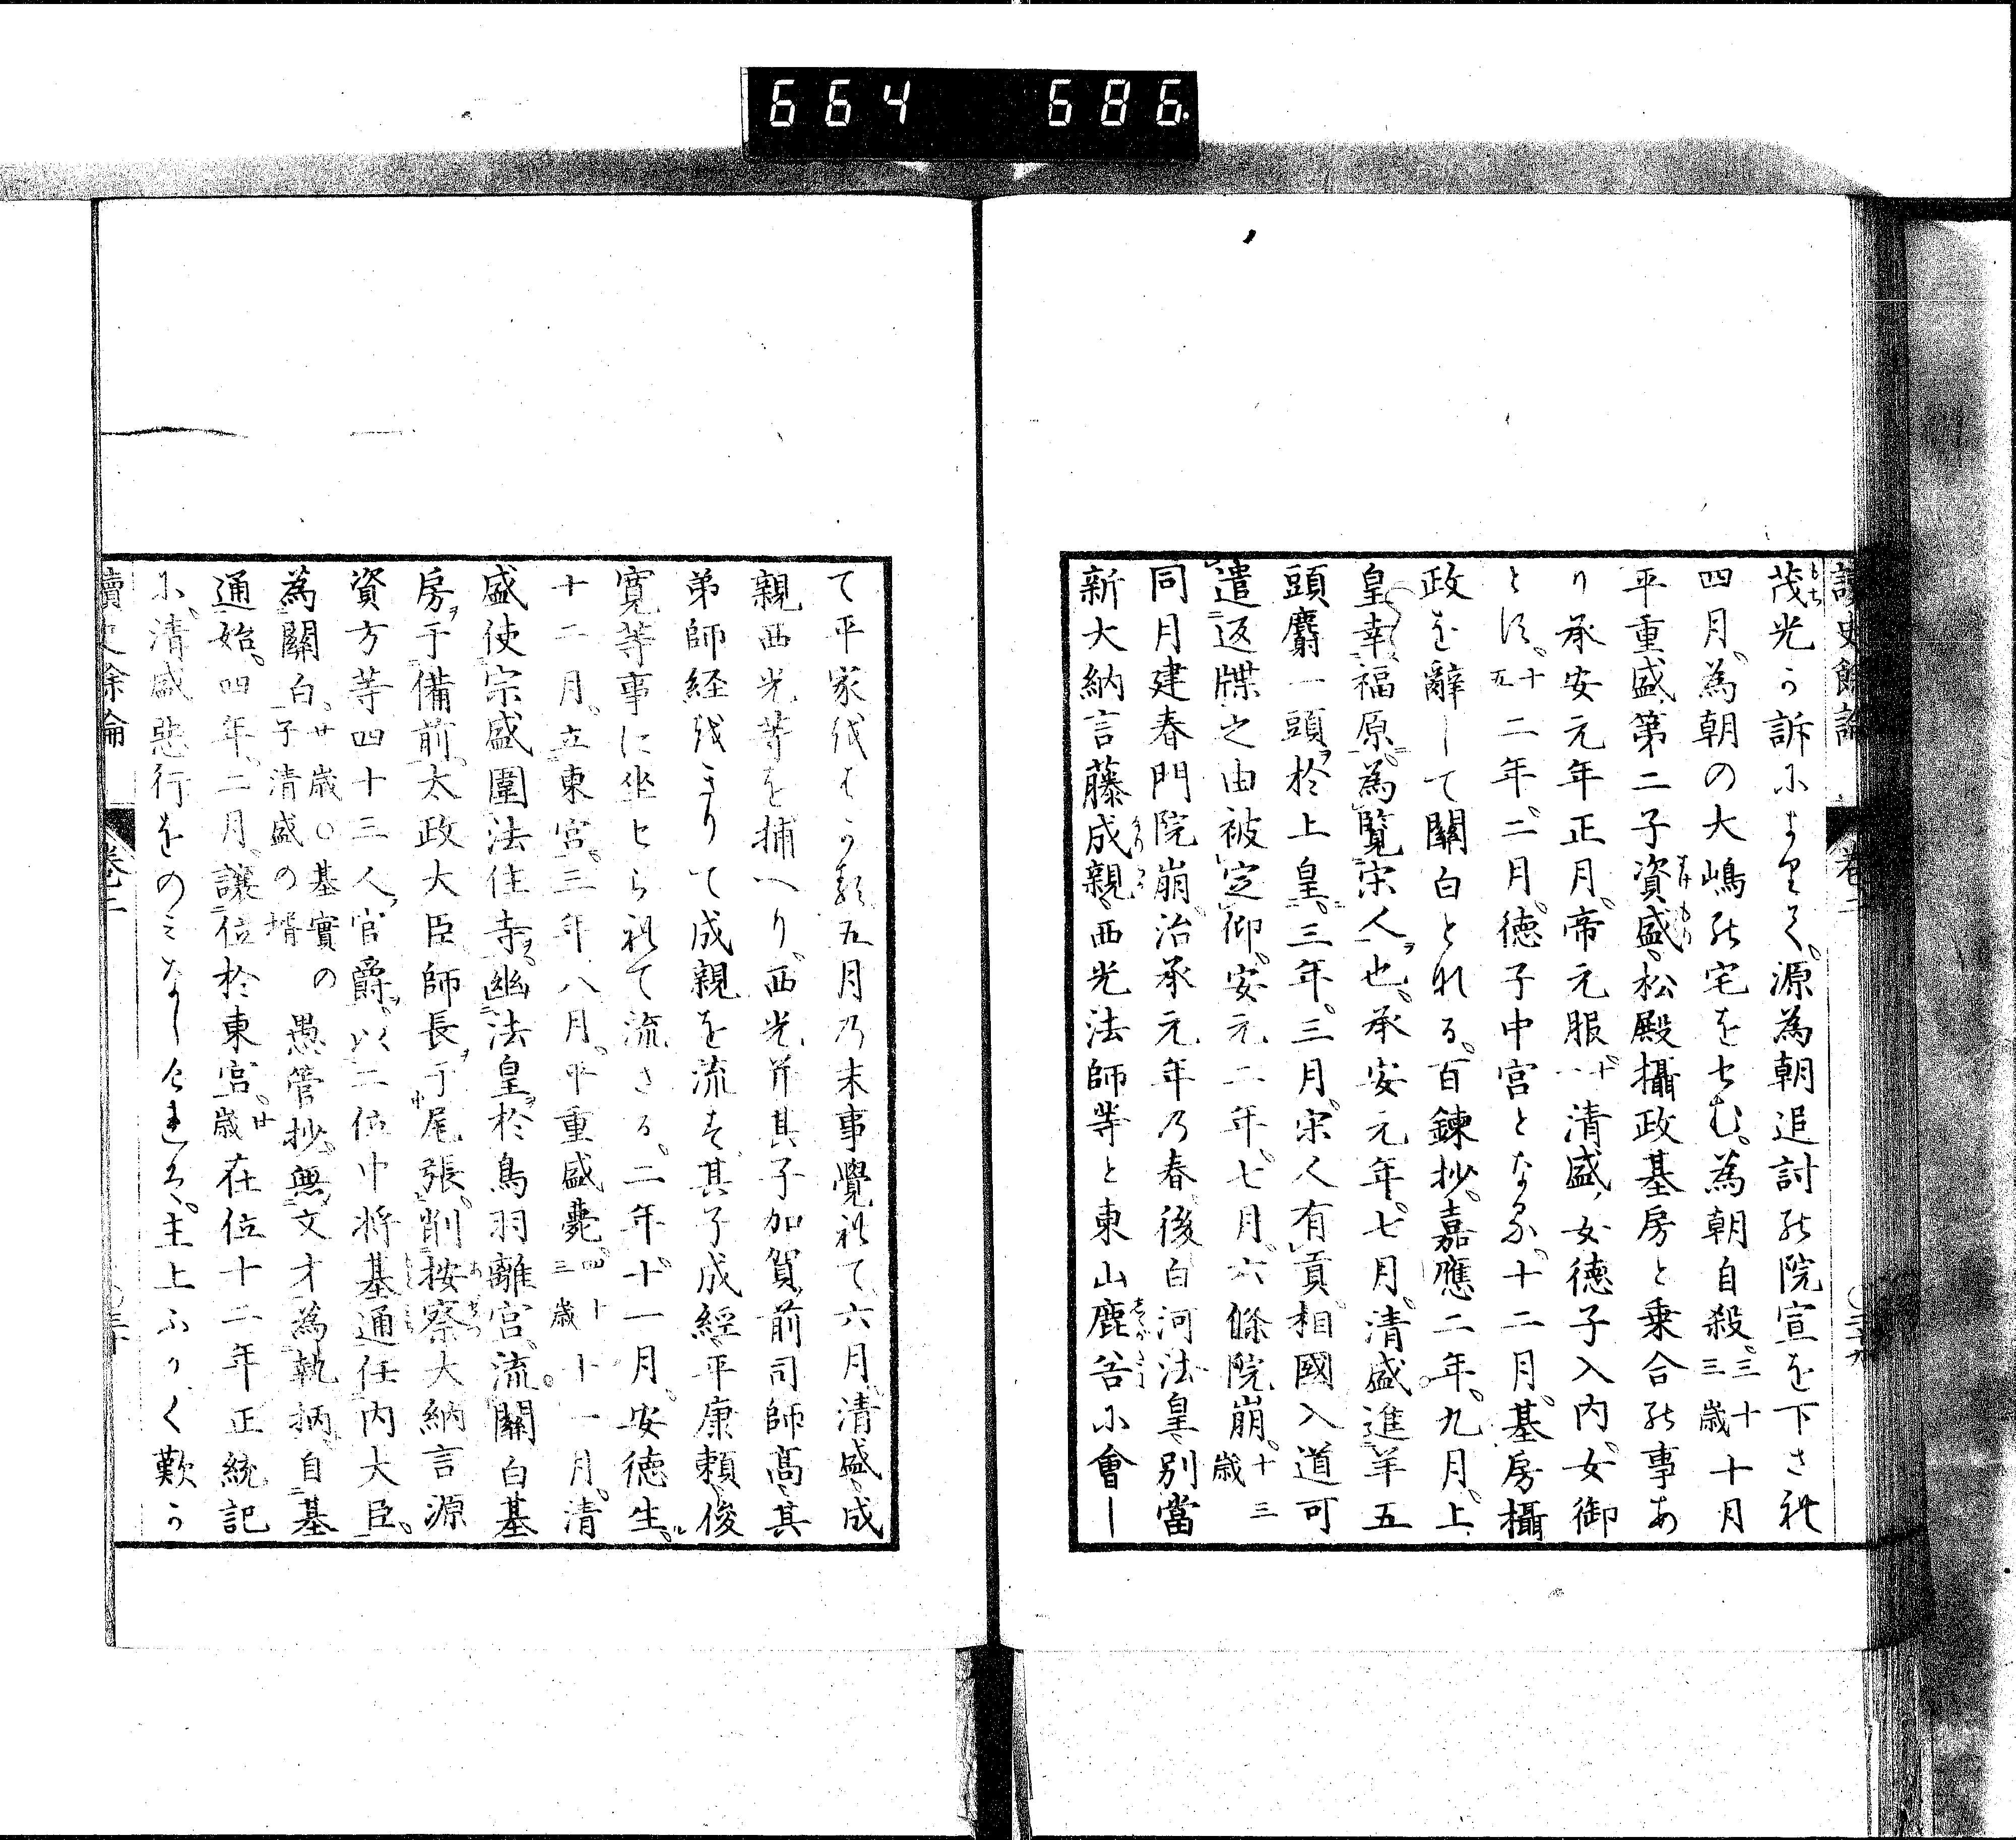 664 686
讀史餘論 巻二
茂光か訴によりて源為朝追討の院宣を下され
四月為朝の大嶋の宅をせむ為朝自殺三十三歳十月
平重盛第二子資盛松殿攝政基房と乗合の事あ
り承安元年正月帝元服十一清盛女徳子入内女御
とす十五二年二月徳子中宮となる十二月基房攝
政を辭して關白とれる百錬抄嘉應二年九月上
皇幸福原為覽宋人也承安元年七月清盛進羊五
頭麝一頭於上皇三年三月宋人有貢相國入道可
遣返牒之由被定仰安元二年七月六條院崩十三歳
同月建春門院崩治承元年乃春後白河法皇別當
新大納言藤成親西光法師等と東山鹿谷に會し
て平家伐はかる五月乃末事覺れて六月清盛成
親西光等を捕へり西光并其子加賀前司師髙其
弟師経伐きりて成親を流す其子成經平康頼俊
寛等事に坐せられて流さる二年十一月安徳生
十二月立東宮三年八月平重盛薨四十三歳十一月清
盛使宗盛圍法住寺幽法皇於鳥羽離宮流關白基
房于備前太政大臣師長于尾張削按察大納言源
資方等四十三人官爵以二位中将基通任内大臣
為關白廿歳○基實の一子清盛の壻愚管抄無文才為執柄自基
通始四年二月讓位於東宮廿歳在位十二年正統記
に清盛惡行をのみなしけれは主上ふかく歎か
讀史餘論 巻二